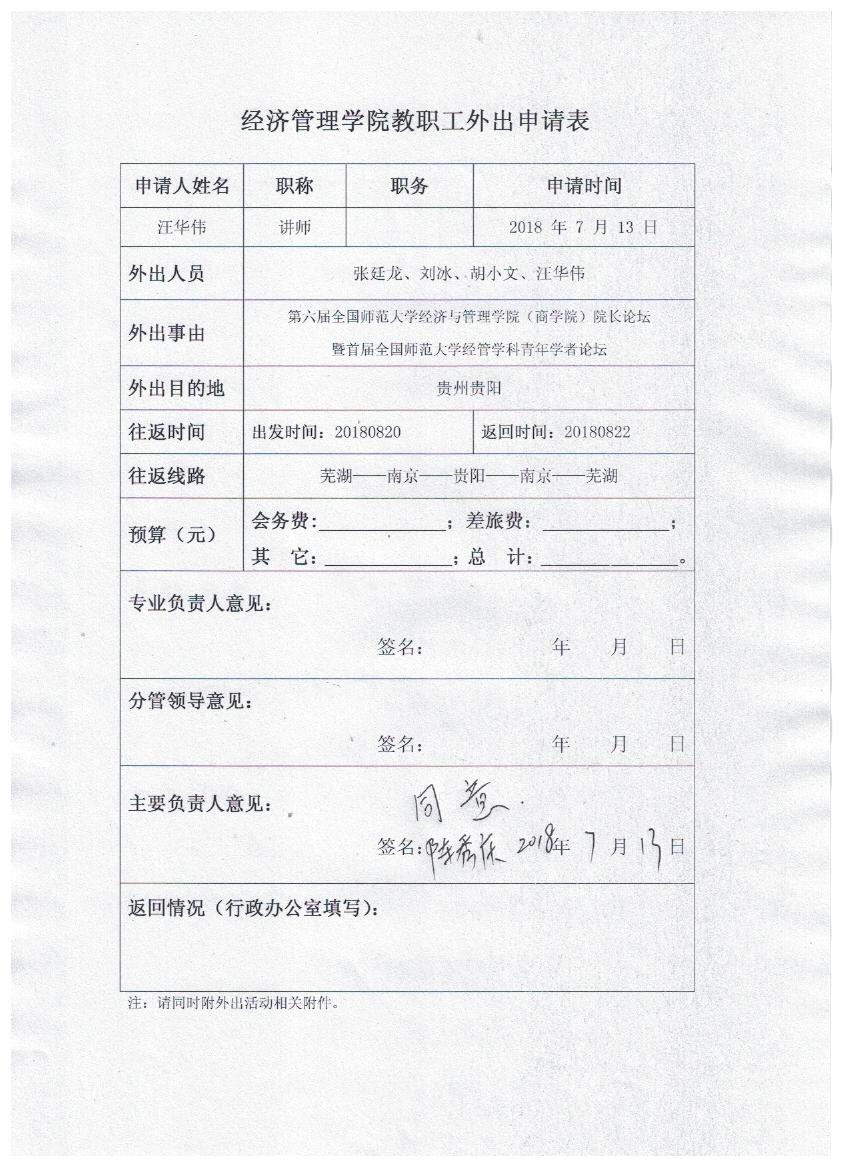 经济管理学院教职工外出申请表
申请人姓名 职称 职务 申请时间
汪华伟 讲师 2018 年 7 月 13 日
外出人员 张廷龙、刘冰、胡小文、汪华伟
外出事由 第六届全国师范大学经济与管理学院（商学院）院长论坛
暨首届全国师范大学经管学科青年学者论坛
外出目的地 贵州贵阳
往返时间 出发时间：20180820 返回时间：20180822
往返线路 芜湖——南京——贵阳——南京——芜湖
预算（元） 会务费：____________；差旅费：____________；
其 它：____________；总 计：____________。
专业负责人意见：
签名： 年 月 日
分管领导意见：
签名： 年 月 日
主要负责人意见： 同意.
签名： 2018年 7 月 13 日
返回情况（行政办公室填写）：
注：请同时附外出活动相关附件。